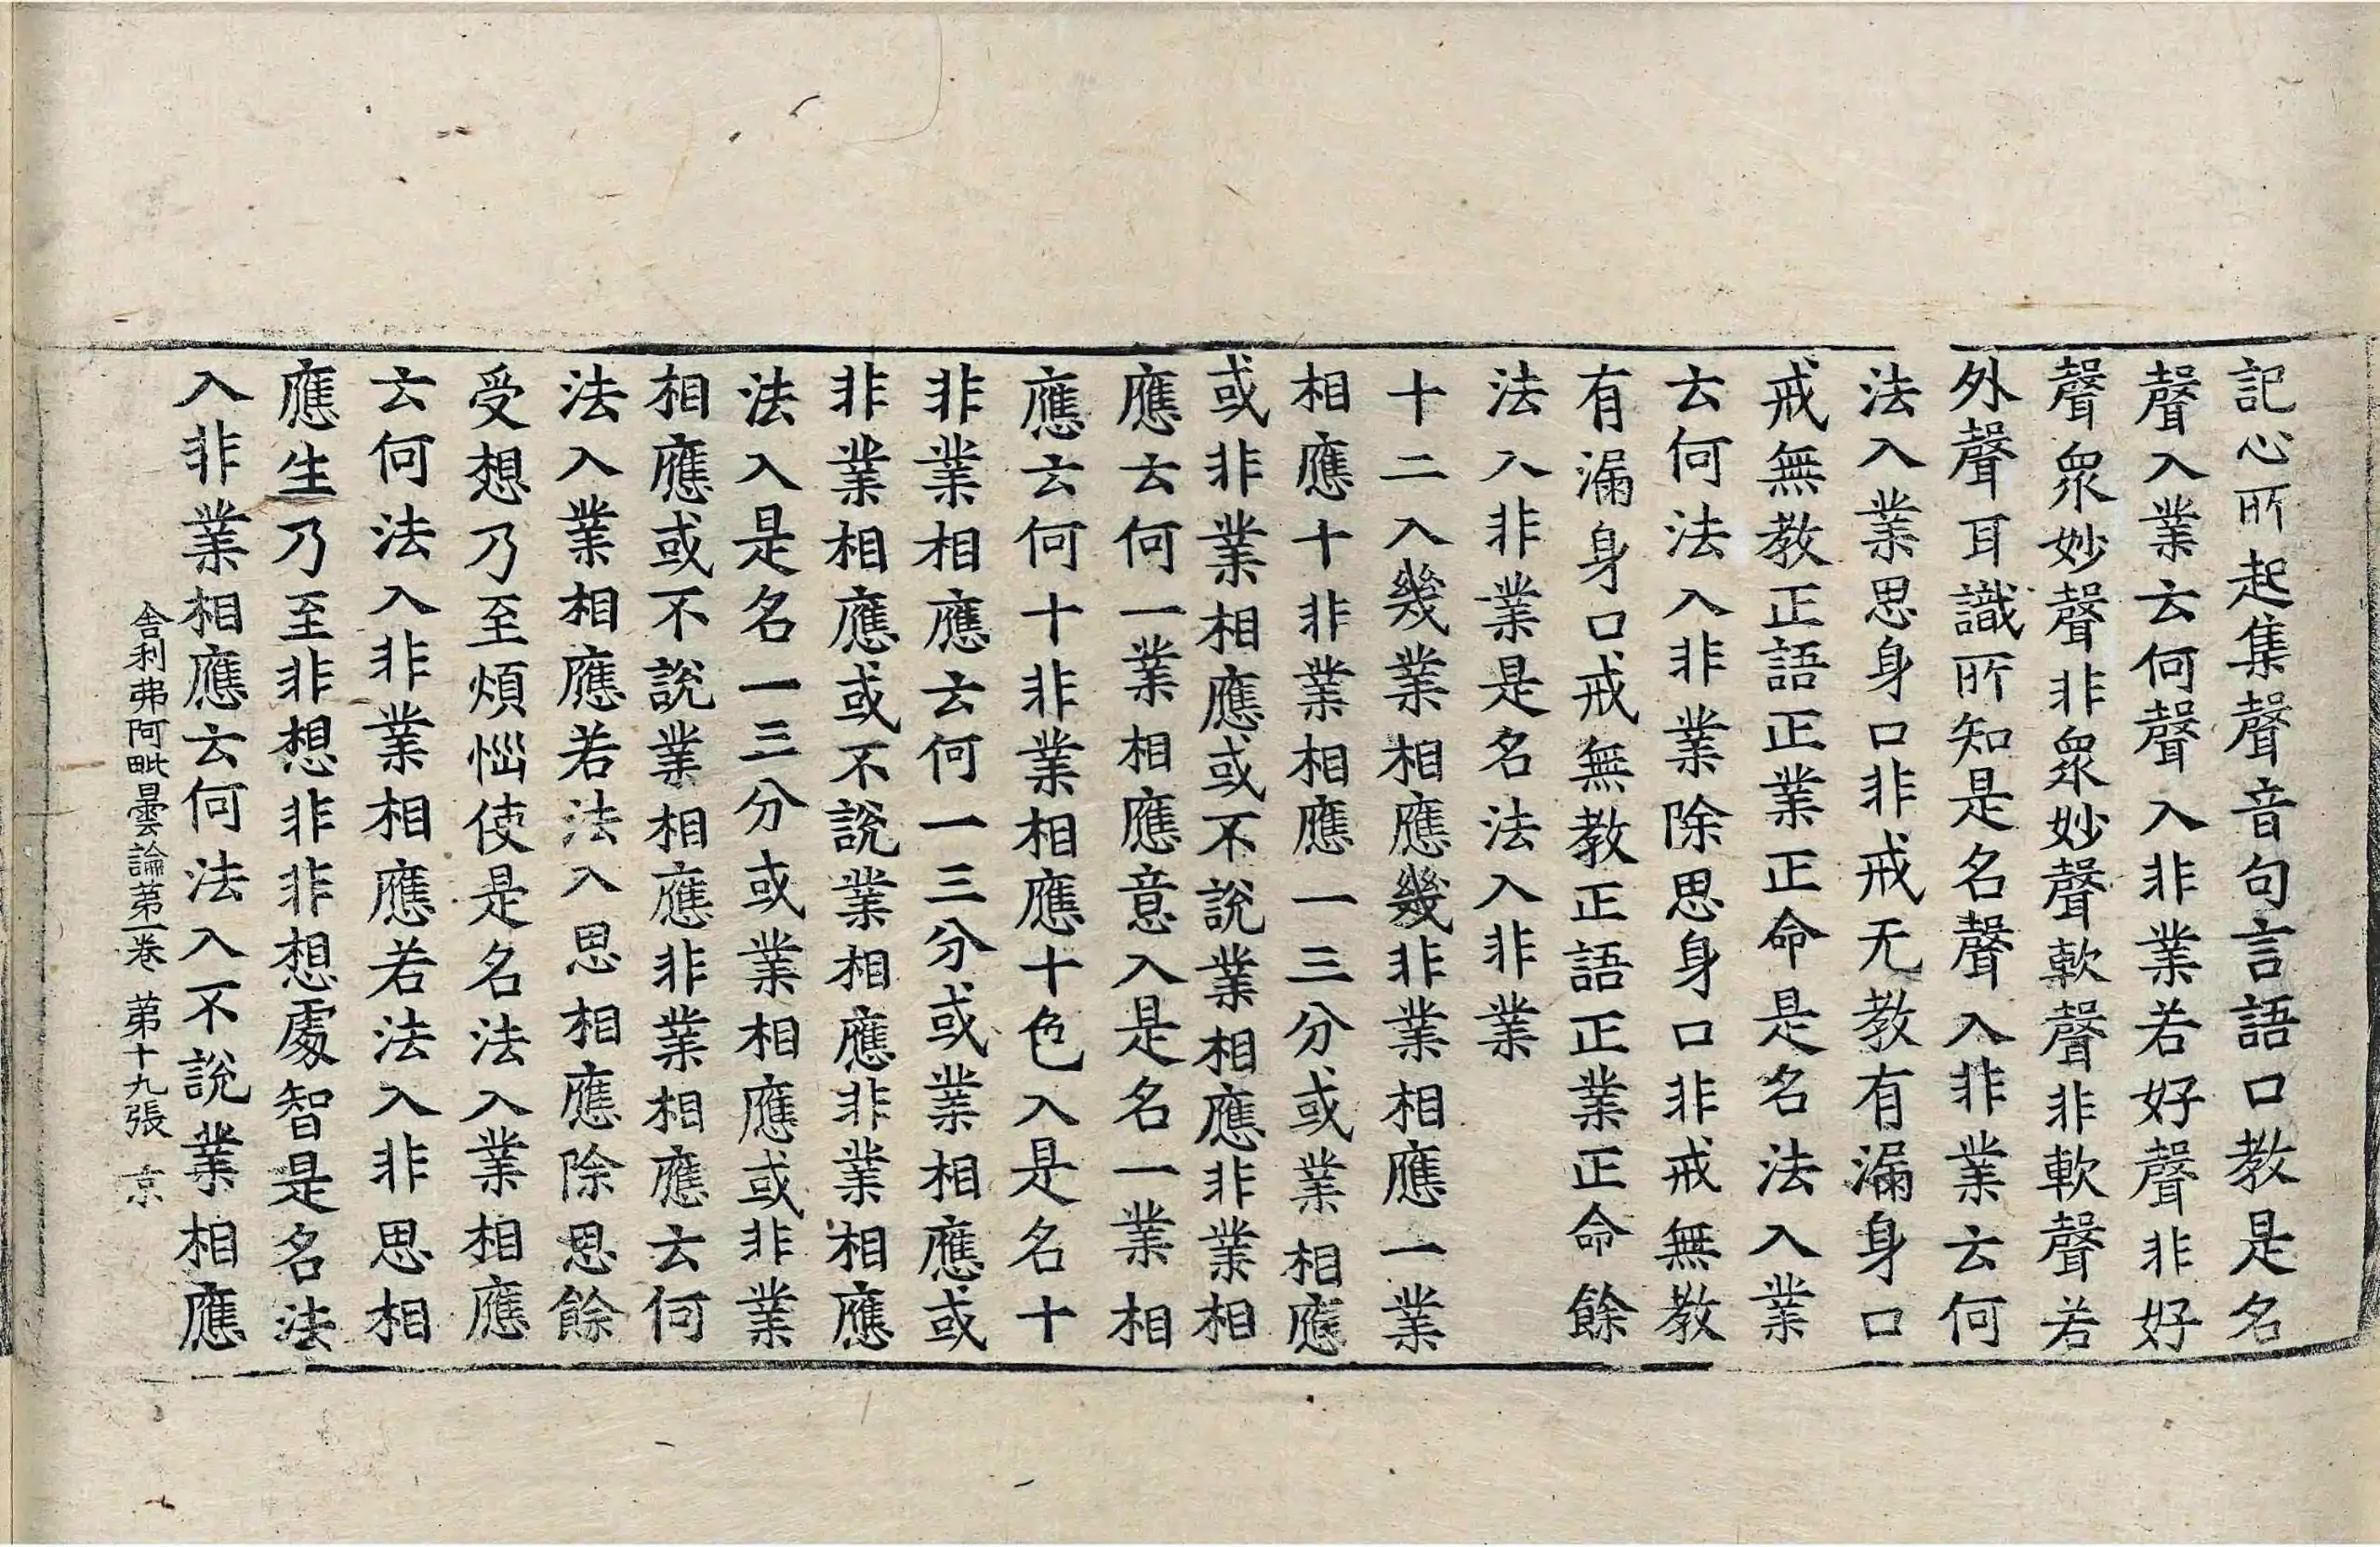 記心所起集聲音句言語口教是名
聲入業云何聲入非業若好聲非好
聲衆妙聲非衆妙聲軟聲非軟聲若
外聲耳識所知是名聲入非業云何
法入業思身口非戒无教有漏身口
戒無教正語正業正命是名法入業
云何法入非業除思身口非戒無教
有漏身口戒無教正語正業正命餘
法入非業是名法入非業
十二入幾業相應幾非業相應一業
相應十非業相應一三分或業相應
或非業相應或不說業相應非業相
應云何一業相應意入是名一業相
應云何十非業相應十色入是名十
非業相應云何一三分或業相應或
非業相應或不說業相應非業相應
法入是名一三分或業相應或非業
相應或不說業相應非業相應云何
法入業相應若法入思相應除思餘
受想乃至煩惱使是名法入業相應
云何法入非業相應若法入非思相
應生乃至非想非非想處智是名法
入非業相應云何法入不說業相應
舎利弗阿毗曇論第一卷 第十九張 京